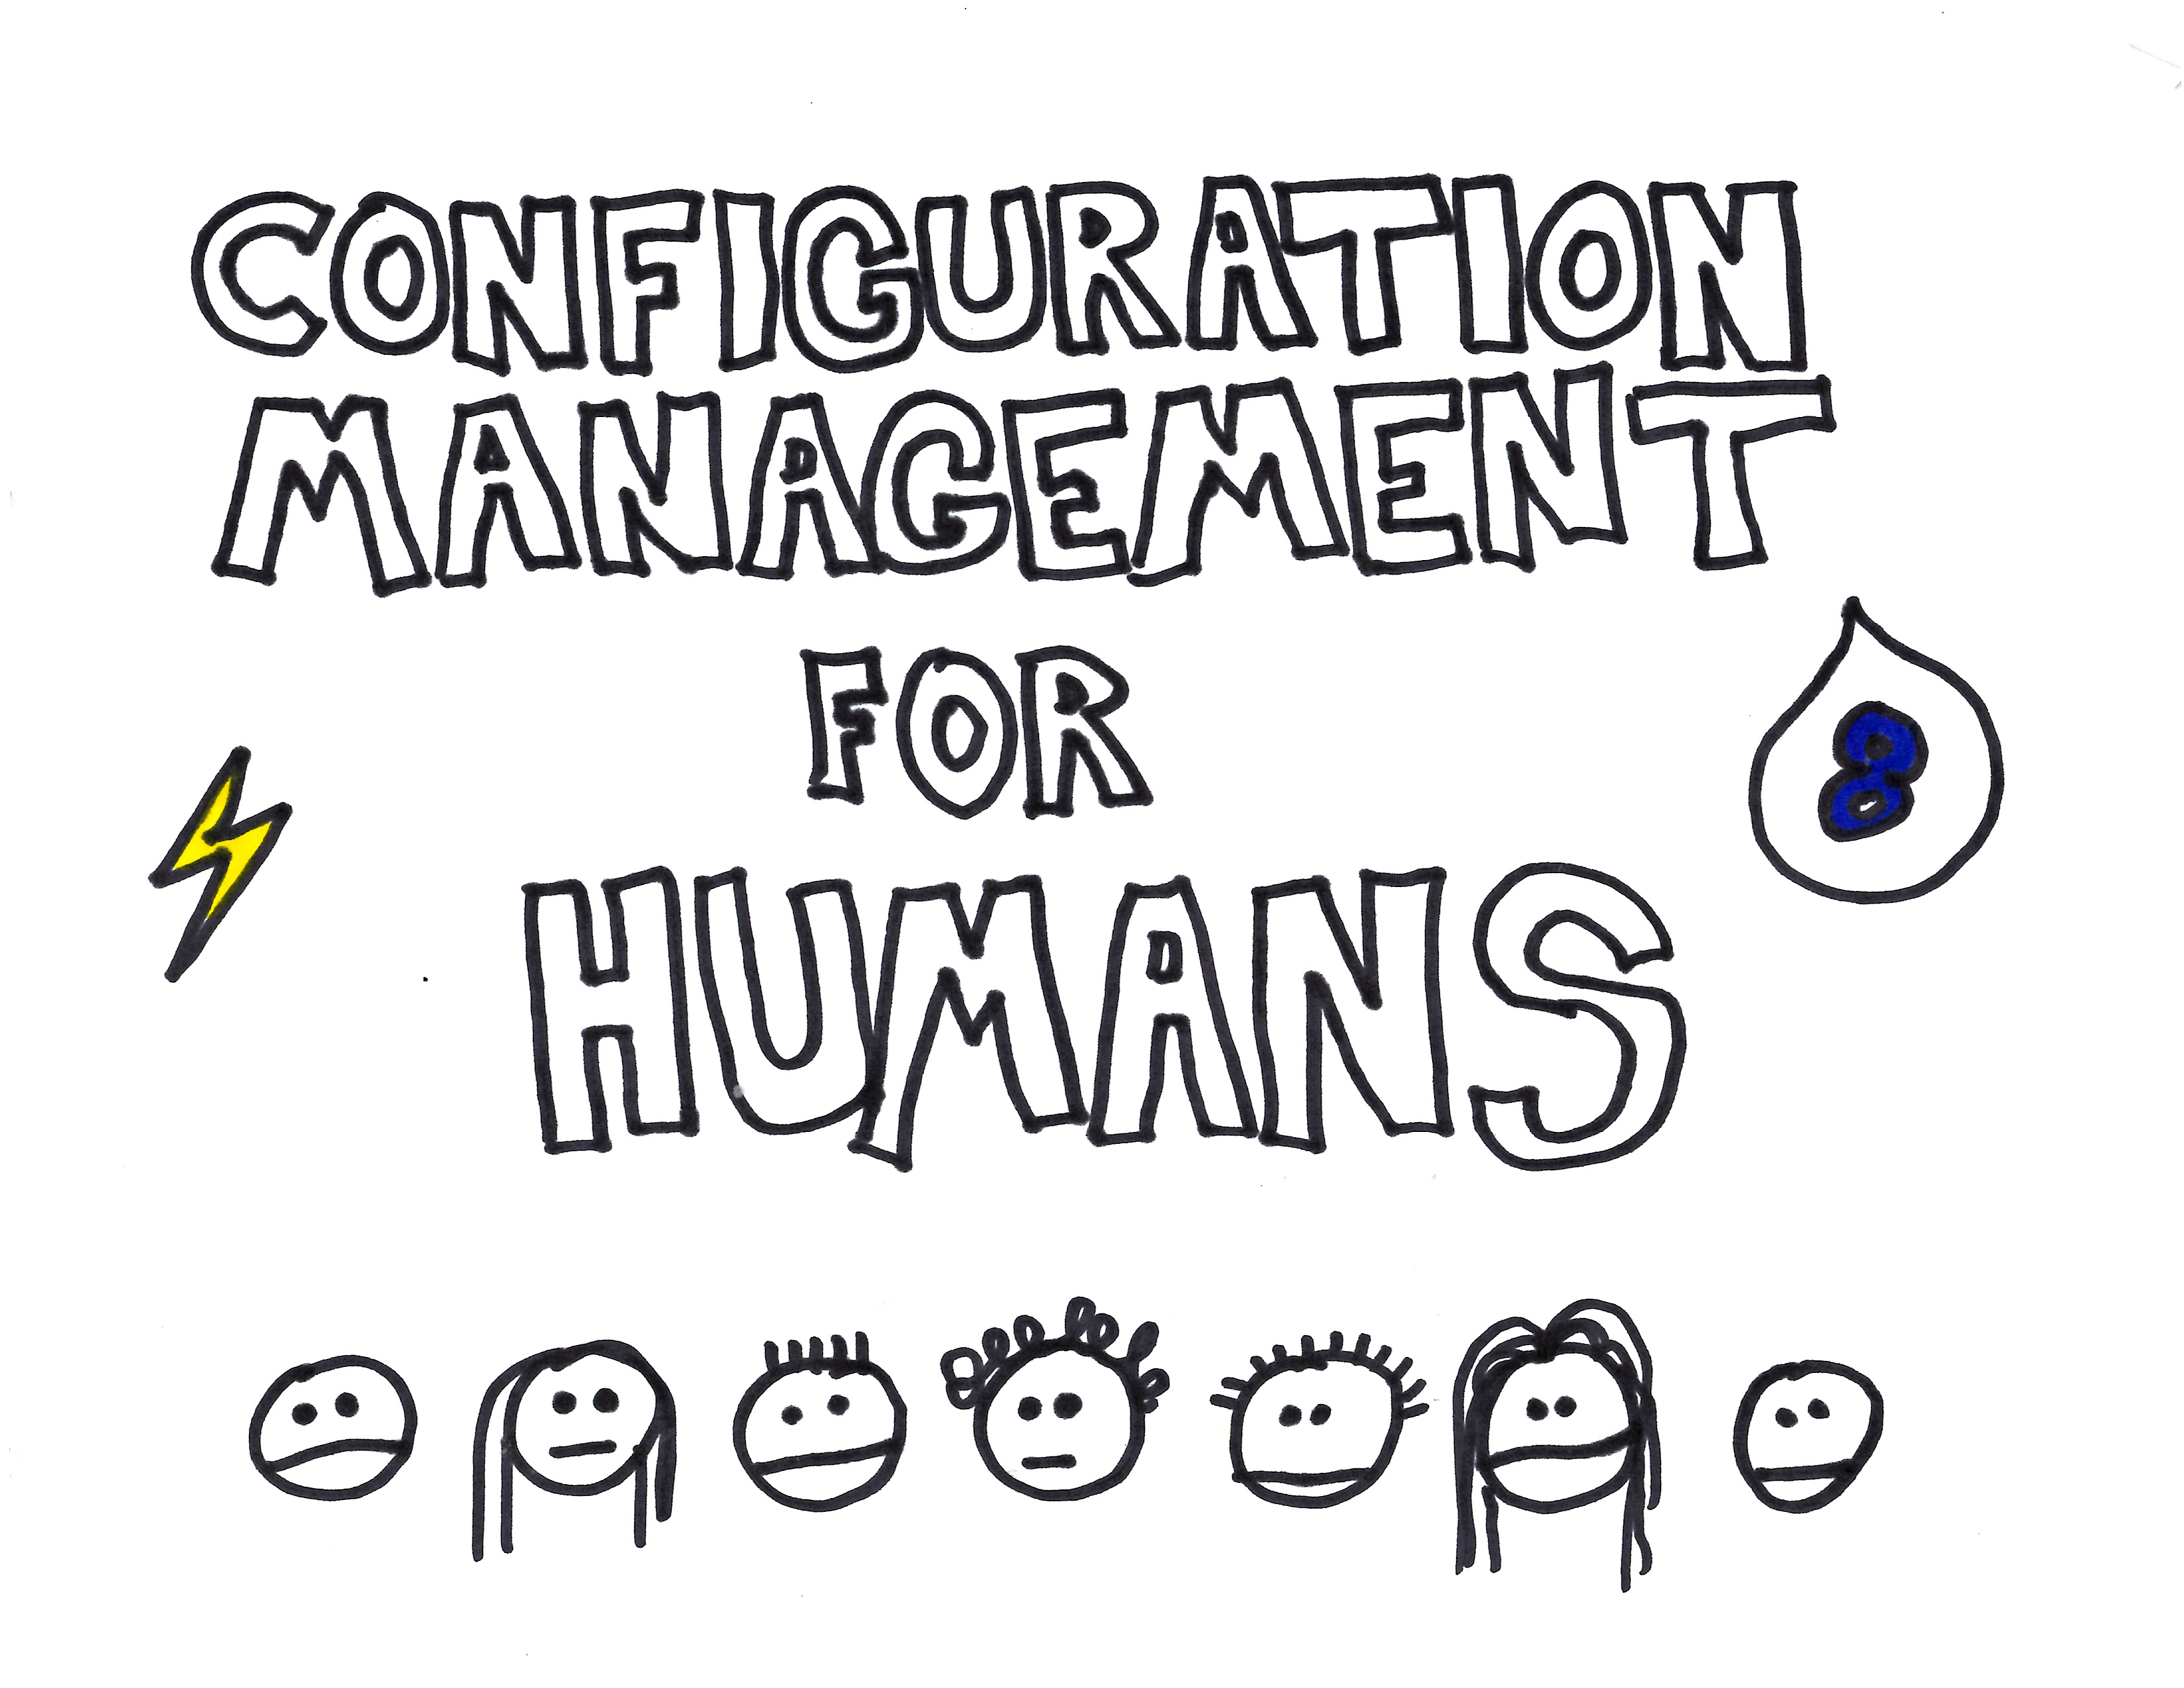 CONFIGURATION
MANAGEMENT
FOR
8
HUMANS